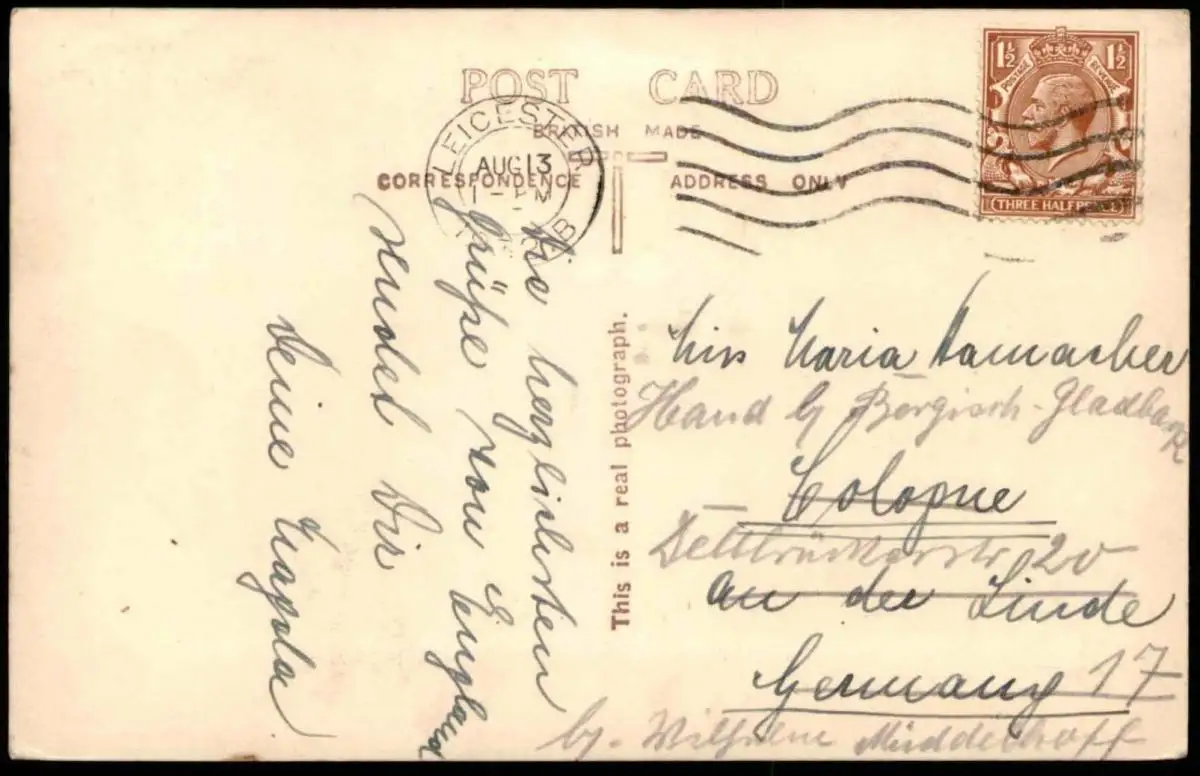 POST CARD
BRITISH MADE
CORRESPONDENCE ADDRESS ONLY
LEICESTER
AUG 13
1 - PM
1½ POSTAGE REVENUE 1½
THREE HALFPENCE
This is a real photograph.
Die herzlichsten
Grüße von England
sendet Dir
Deine Magda
Miss Maria
Hand b/ Bergisch-Gladbach
Cologne
20
an der Linde
Germany 17
by.